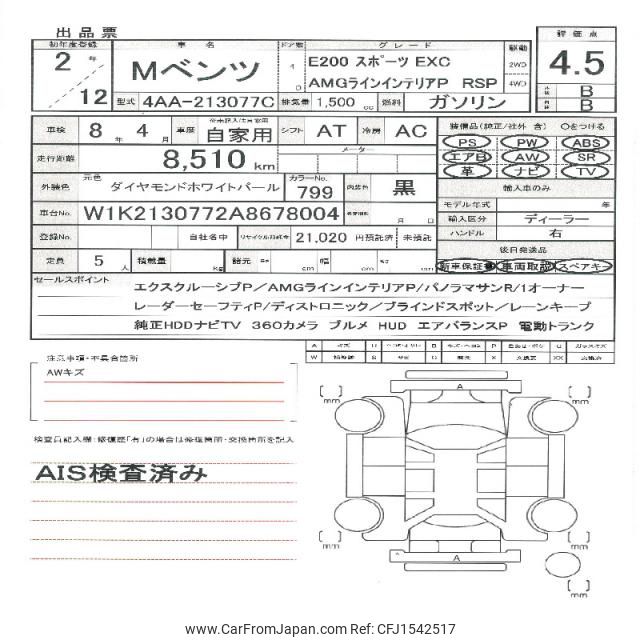 出品票
初年度登録 車 名 ドア数 グレード 駆動 評価点
2 年 / 12
Mベンツ
4 D
E200 スポーツ EXC
AMGラインインテリアP RSP
2WD
4WD
4.5
B
B
型式 4AA-213077C 排気量 1,500 cc 燃料 ガソリン
車検 8 年 4 月 車歴 自家用 シフト AT 冷房 AC
走行距離 8,510 km メーター
外装色 元色 ダイヤモンドホワイトパール カラーNo. 799 内装色 黒
車台No. W1K2130772A8678004 月 日
登録No. 自社名中 リサイクル預託金 21,020 円預託済 未預託
定員 5 人 積載量 kg 諸元 cm cm cm
装備品(純正/社外 含) ○をつける
PS PW ABS
エアB AW SR
革 ナビ TV
輸入車のみ
モデル年式 年
輸入区分 ディーラー
ハンドル 右
後日発送品
新車保証書 車両取説 スペアキー
セールスポイント
エクスクルーシブP/AMGラインインテリアP/パノラマサンR/1オーナー
レーダーセーフティP/ディストロニック/ブラインドスポット/レーンキープ
純正HDDナビTV 360カメラ ブルメ HUD エアバランスP 電動トランク
注意事項・不具合箇所
AWキズ
検査員記入欄:修復歴「有」の場合は修復箇所・交換箇所を記入
AIS検査済み
A
A
mm mm
mm mm
mm
CarFromJapan.com Ref: CFJ1542517